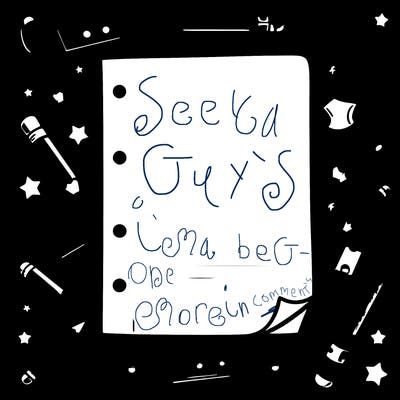 SeeYa
Guy's
i'ma beG-
one
more in comment's